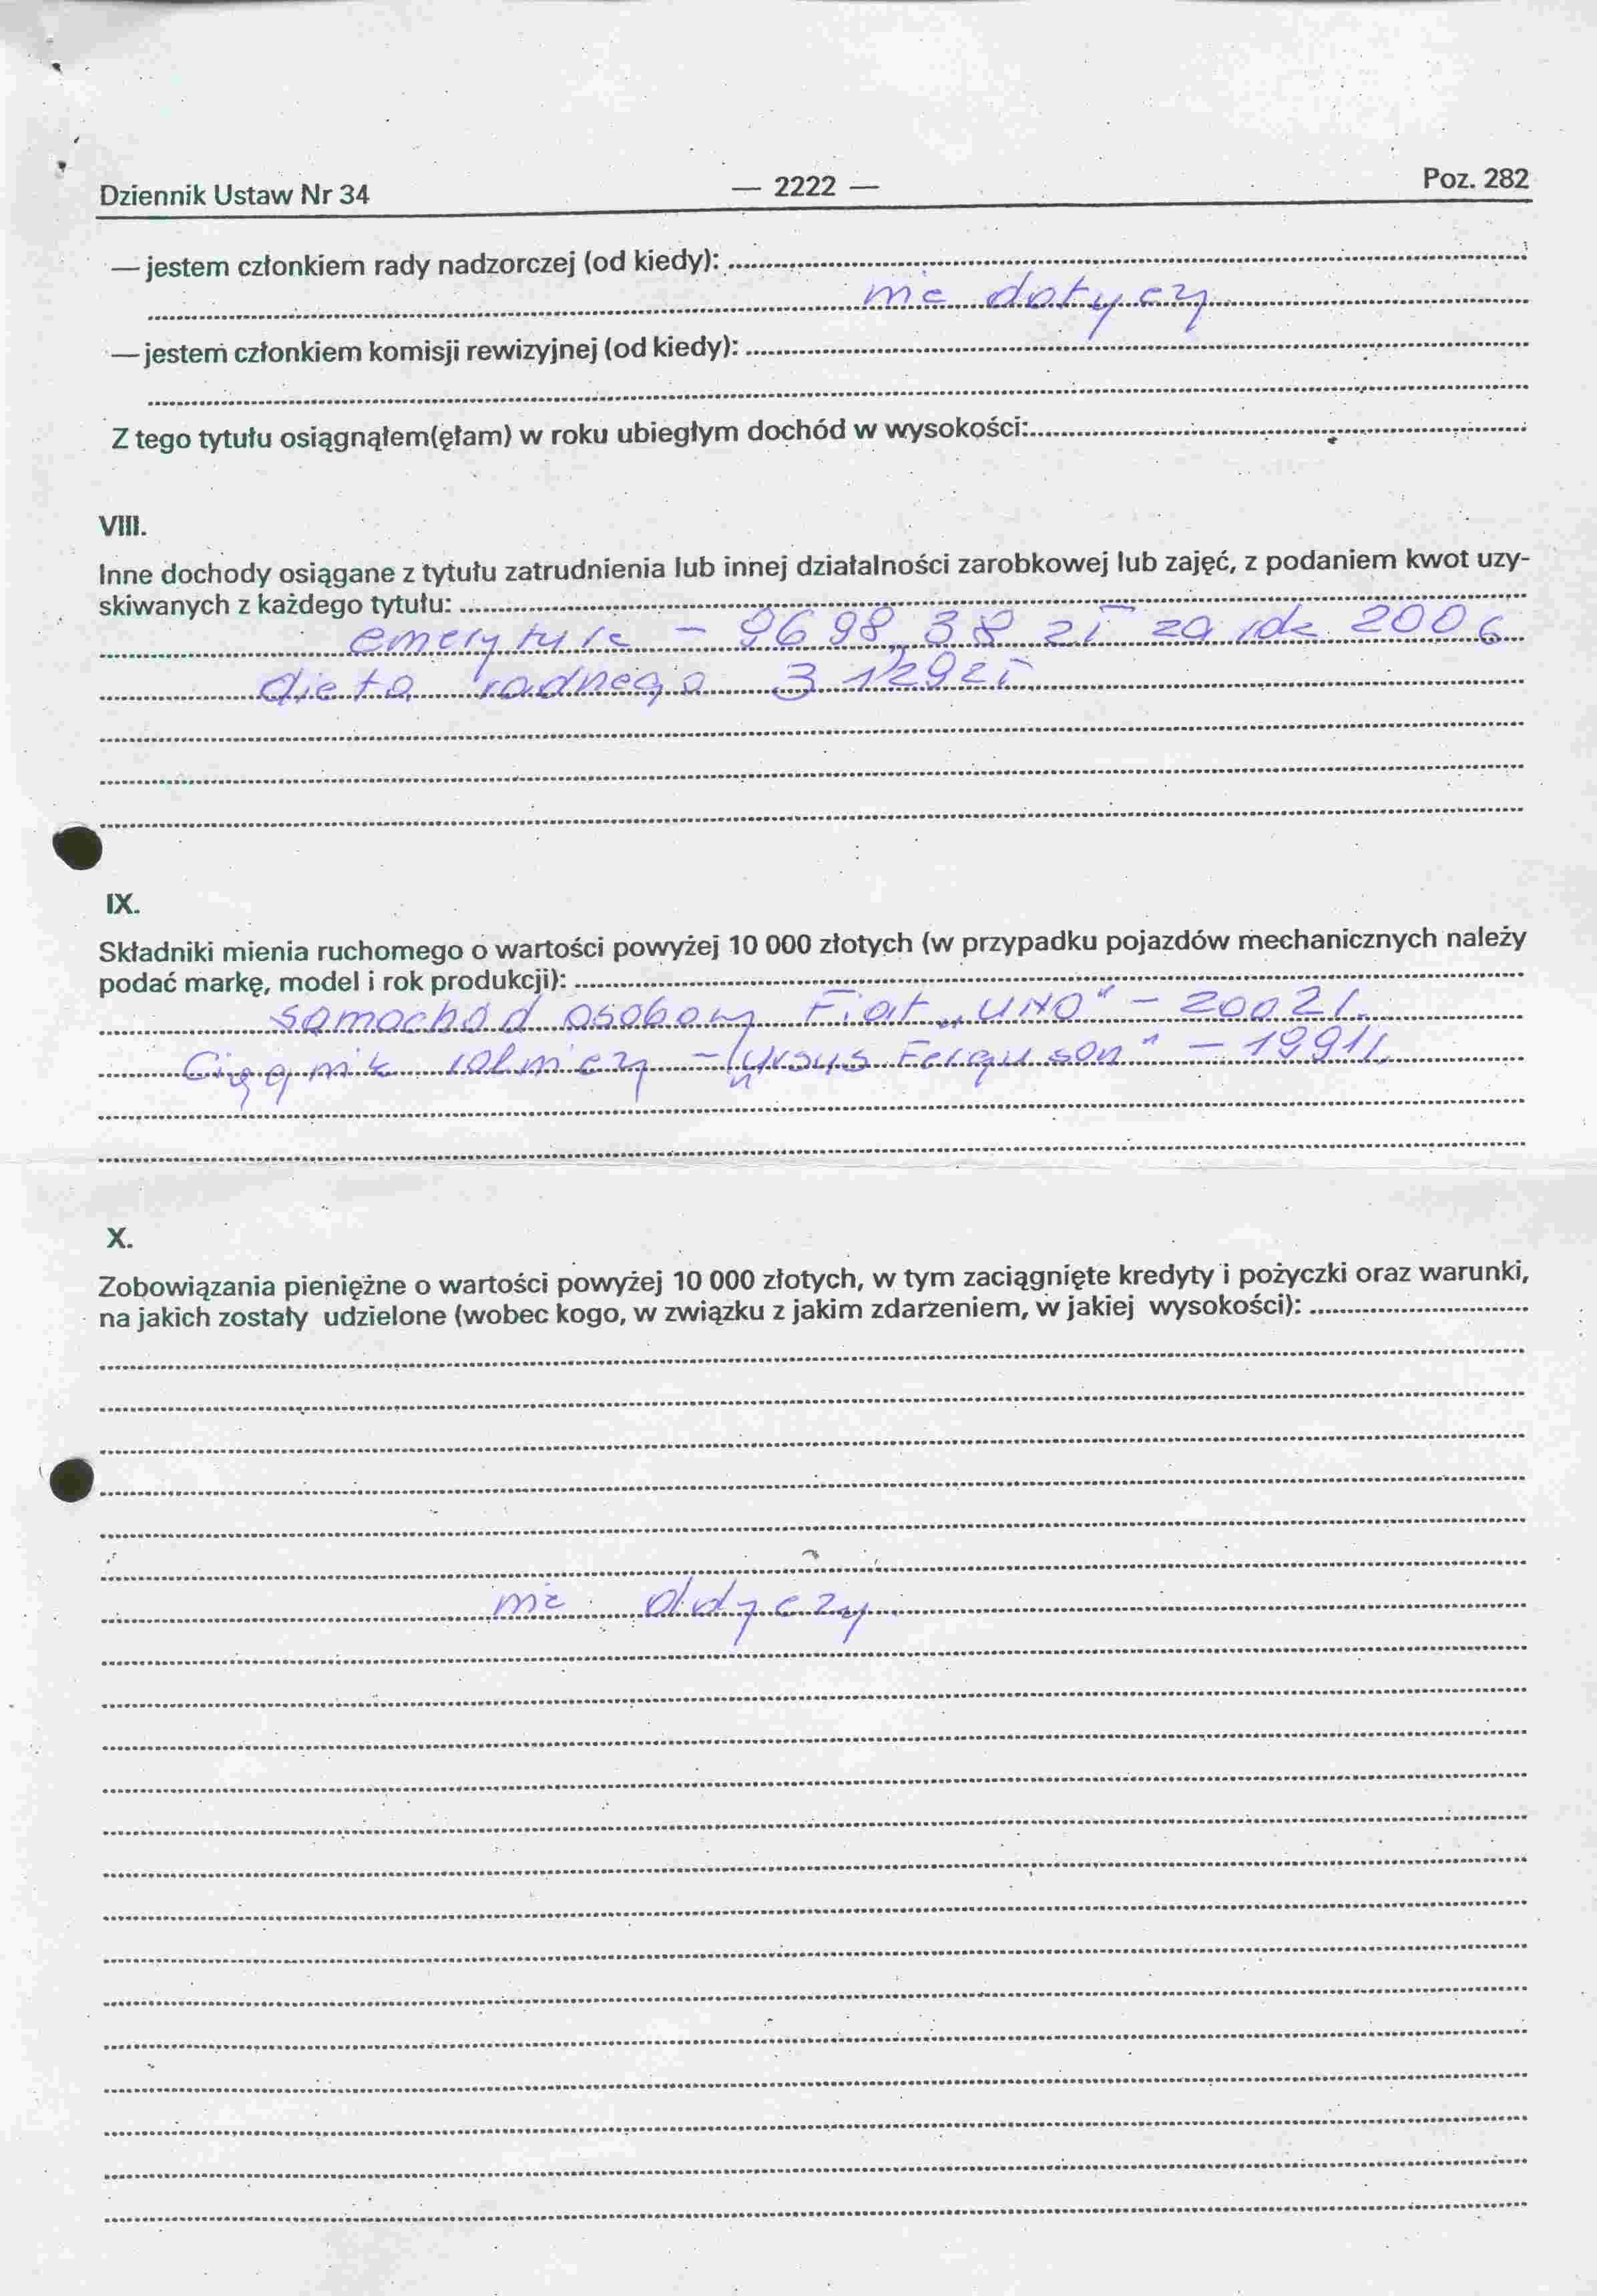 Dziennik Ustaw Nr 34 — 2222 — Poz. 282
— jestem członkiem rady nadzorczej (od kiedy):
nie dotyczy
— jestem członkiem komisji rewizyjnej (od kiedy):
Z tego tytułu osiągnąłem(ęłam) w roku ubiegłym dochód w wysokości:
VIII.
Inne dochody osiągane z tytułu zatrudnienia lub innej działalności zarobkowej lub zajęć, z podaniem kwot uzy-
skiwanych z każdego tytułu:
emerytura - 9698,38 zł za rok 2006
dieta radnego 3 129 zł
IX.
Składniki mienia ruchomego o wartości powyżej 10 000 złotych (w przypadku pojazdów mechanicznych należy
podać markę, model i rok produkcji):
samochód osobowy Fiat „UNO" - 2002 r.
Ciągnik rolniczy - „Ursus Ferguson" - 1991 r.
X.
Zobowiązania pieniężne o wartości powyżej 10 000 złotych, w tym zaciągnięte kredyty i pożyczki oraz warunki,
na jakich zostały udzielone (wobec kogo, w związku z jakim zdarzeniem, w jakiej wysokości):
nie dotyczy